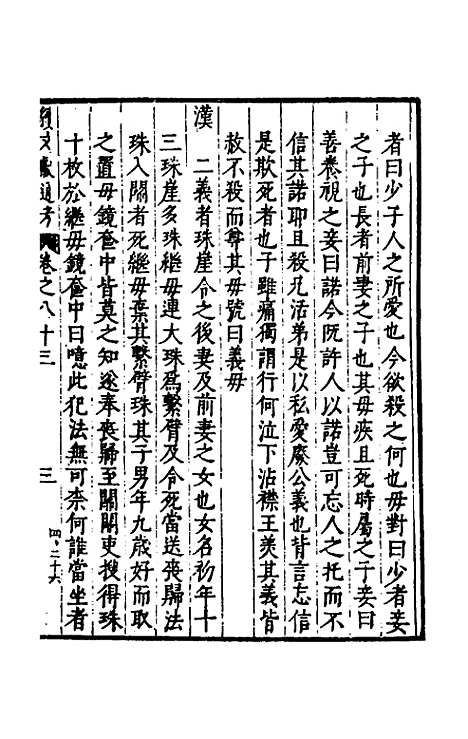 者曰少子人之所愛也今欲殺之何也母對曰少者妾
之子也長者前妻之子也其母疾且死時屬之于妾曰
善養視之妾曰諾今既許人以諾豈可忘人之托而不
信其諾耶且殺兄活弟是以私愛廢公義也背言忘信
是欺死者也子雖痛獨謂行何泣下沾襟王美其義皆
赦不殺而尊其母號曰義母
漢　二義者珠崖令之後妻及前妻之女也女名初年十
三珠崖多珠繼母連大珠爲繫臂及令死當送喪歸法
珠入關者死繼母棄其繫臂珠其子男年九歲好而取
之置母鏡奩中皆莫之知遂奉喪歸至關關吏搜得珠
十枚於繼母鏡奩中曰噫此犯法無可柰何誰當坐者
文獻通考　卷之八十三　三
四、二十六